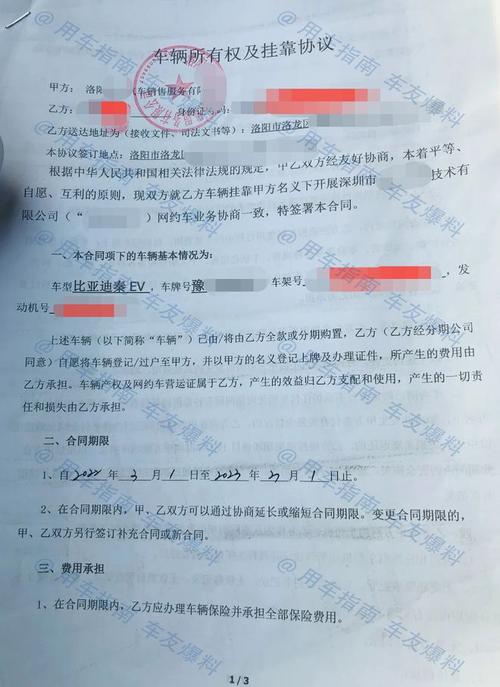 车辆所有权及挂靠协议
甲方：洛 车辆销售服务有
乙方： 身份证号码：
乙方送达地址为（接收文件、司法文书等）：洛阳市洛龙
本协议签订地点：洛阳市洛龙
根据中华人民共和国相关法律法规的规定，甲乙双方经友好协商，本着平等、
自愿、互利的原则，现双方就乙方车辆挂靠甲方名义下开展深圳市 技术有
限公司（“ ）网约车业务协商一致，特签署本合同。
一、本合同项下的车辆基本情况为：
车型比亚迪秦EV，车牌号豫 车架号 ，发
动机号
上述车辆（以下简称“车辆”）已由/将由乙方全款或分期购置，乙方（乙方经分期公司
同意）自愿将车辆登记/过户至甲方，并以甲方的名义登记上牌及办理证件，所产生的费用由
乙方承担。车辆产权及网约车营运证属于乙方，产生的效益归乙方支配和使用，产生的一切责
任和损失由乙方承担。
二、合同期限
1、自2022年3月1日至2023年2月1日止。
2、在合同期限内，甲、乙双方可以通过协商延长或缩短合同期限。变更合同期限的，
甲、乙双方另行签订补充合同或新合同。
三、费用承担
1、在合同期限内，乙方应办理车辆保险并承担全部保险费用。
1/3
@用车指南 车友爆料